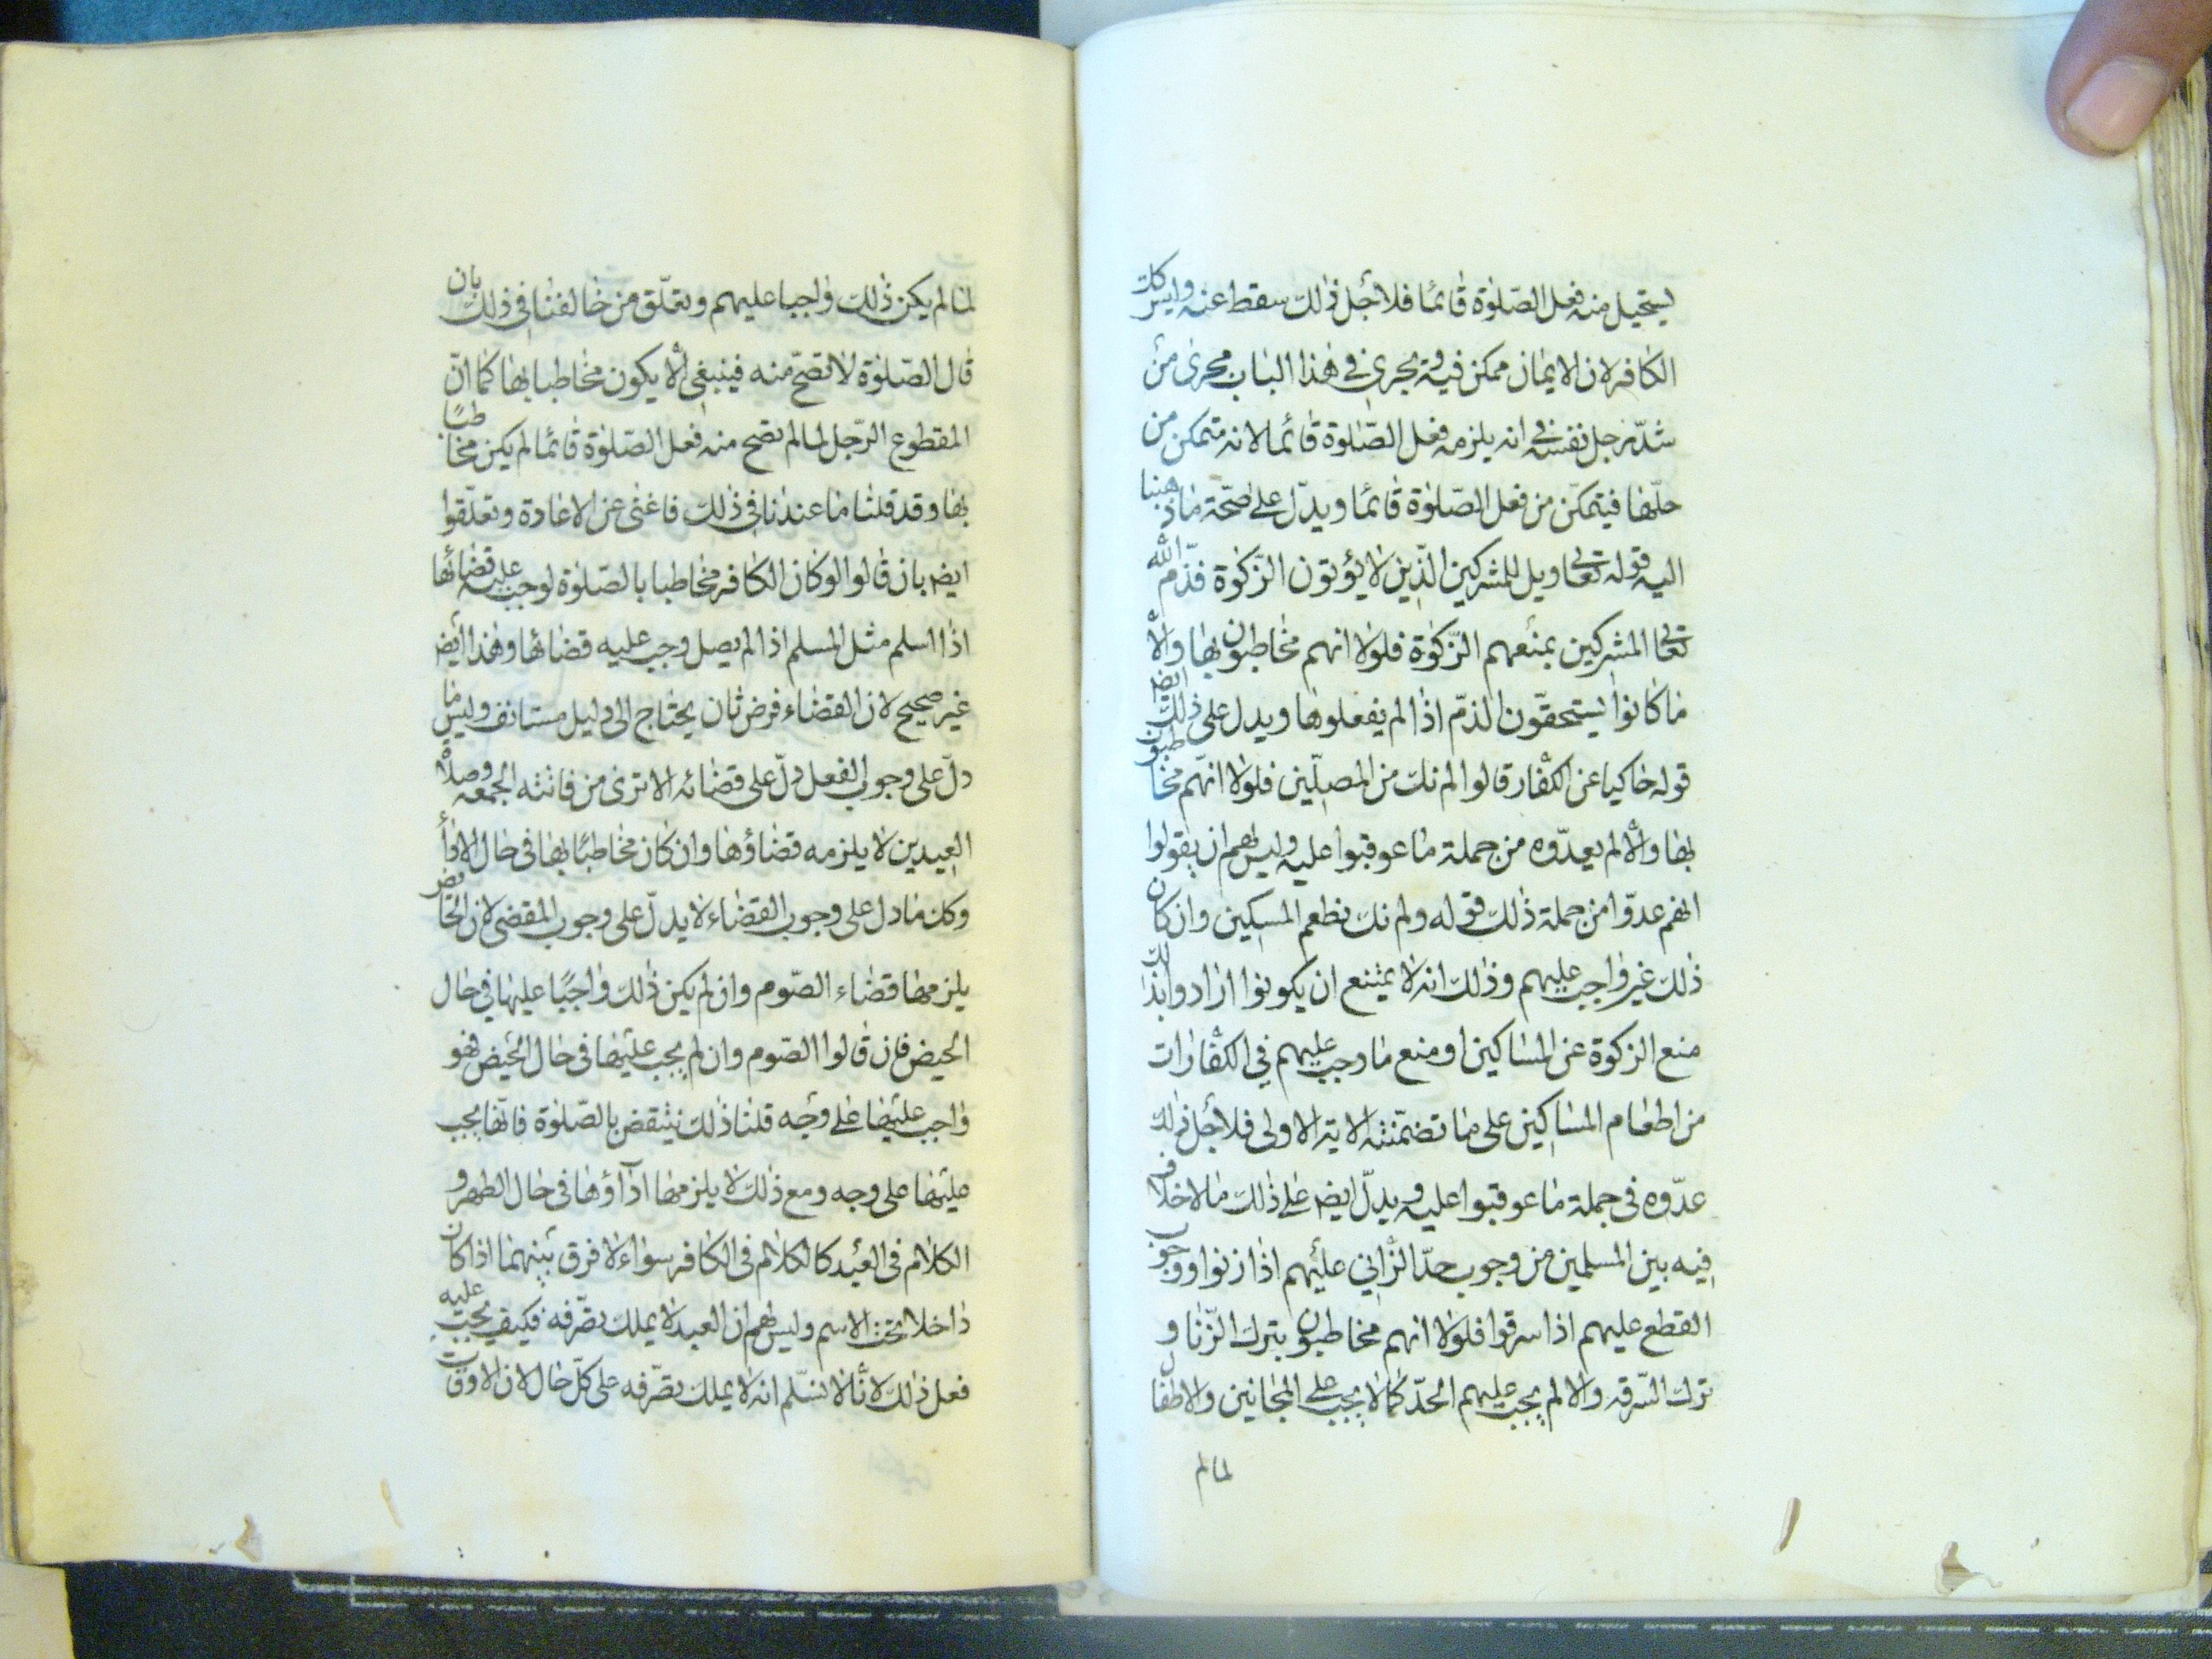 يستحيل منه فعل الصّلوة قائما فلاجل ذلك سقط عنه وليس كك
الكافر لان الايمان ممكن فيه ويجرى في هذا الباب مجرى من
شدّ رجل نفسه في انه يلزمه فعل الصّلوة قائما لانه متمكن من
حلّها فيتمكّن من فعل الصّلوة قائما ويدلّ على صحّة ما ذهبنا
اليه قوله تعالى ويل للمشركين الّذين لا يؤتون الزّكوة فذمّ الله
تعالى المشركين بمنعهم الزّكوة فلولا انهم مخاطبون بها والا
ما كانوا يستحقّون الذمّ اذا لم يفعلوها ويدل على ذلك ايضا
قوله حاكيا عن الكفّار قالوا لم نك من المصلّين فلولا انّهم مخاطبون
بها والا لم يعدّوه من جملة ما عوقبوا عليه وليس لهم ان يقولوا
انهم عدّوا من جملة ذلك قوله ولم نك نطعم المسكين وان كان
ذلك غير واجب عليهم وذلك انه لا يمتنع ان يكونوا ارادوا بذلك
منع الزكوة عن المساكين او منع ما وجب عليهم في الكفّارات
من اطعام المساكين على ما تضمّنته الاية الاولى فلاجل ذلك
عدّوه في جملة ما عوقبوا عليه ويدلّ ايضا على ذلك ما لا خلاف
فيه بين المسلمين من وجوب حدّ الزّاني عليهم اذا زنوا ووجوب
القطع عليهم اذا سرقوا فلولا انهم مخاطبون بترك الزّنا و
ترك السّرقه والا لم يجب عليهم الحدّ كما لا يجب على المجانين والاطفال
لما لم
لما لم يكن ذلك واجبا عليهم وتعلّق من خالفنا في ذلك بان
قال الصّلوة لا تصحّ منه فينبغي الا يكون مخاطبا بها كما انّ
المقطوع الرّجل لما لم تصح منه فعل الصّلوة قائما لم يكن مخاطبًا
بها وقد قلنا ما عندنا في ذلك فاغنى عن الاعادة وتعلّقوا
ايضا بان قالوا لو كان الكافر مخاطبا بالصّلوة لوجب عليه قضائها
اذا اسلم مثل المسلم اذا لم يصل وجب عليه قضائها وهذا ايضا
غير صحيح لان القضاء فرض ثان يحتاج الى دليل مستانف وليس ما
دلّ على وجوب الفعل دلّ على قضائه الا ترى من فاتته الجمعه وصلاة
العيدين لا يلزمه قضاؤها وان كان مخاطبًا بها في حال الاداء
وكك ما دل على وجوب القضاء لا يدلّ على وجوب المقضى لان الحايض
يلزمها قضاء الصّوم وان لم يكن ذلك واجبًا عليها في حال
الحيض فان قالوا الصّوم وان لم يجب عليها في حال الحيض فهو
واجب عليها على وجه قلنا ذلك ينتقض بالصّلوة فانّها يجب
عليها على وجه ومع ذلك لا يلزمها اداؤها في حال الطهر و
الكلام في العبد كالكلام في الكافر سواء لا فرق بينهما اذا كان
داخلا تحت الاسم وليس لهم ان العبد لا يملك تصّرفه فكيف يجب عليه
فعل ذلك لانّا لا نسّلم انه لا يملك تصّرفه على كلّ حال لان الاوقات